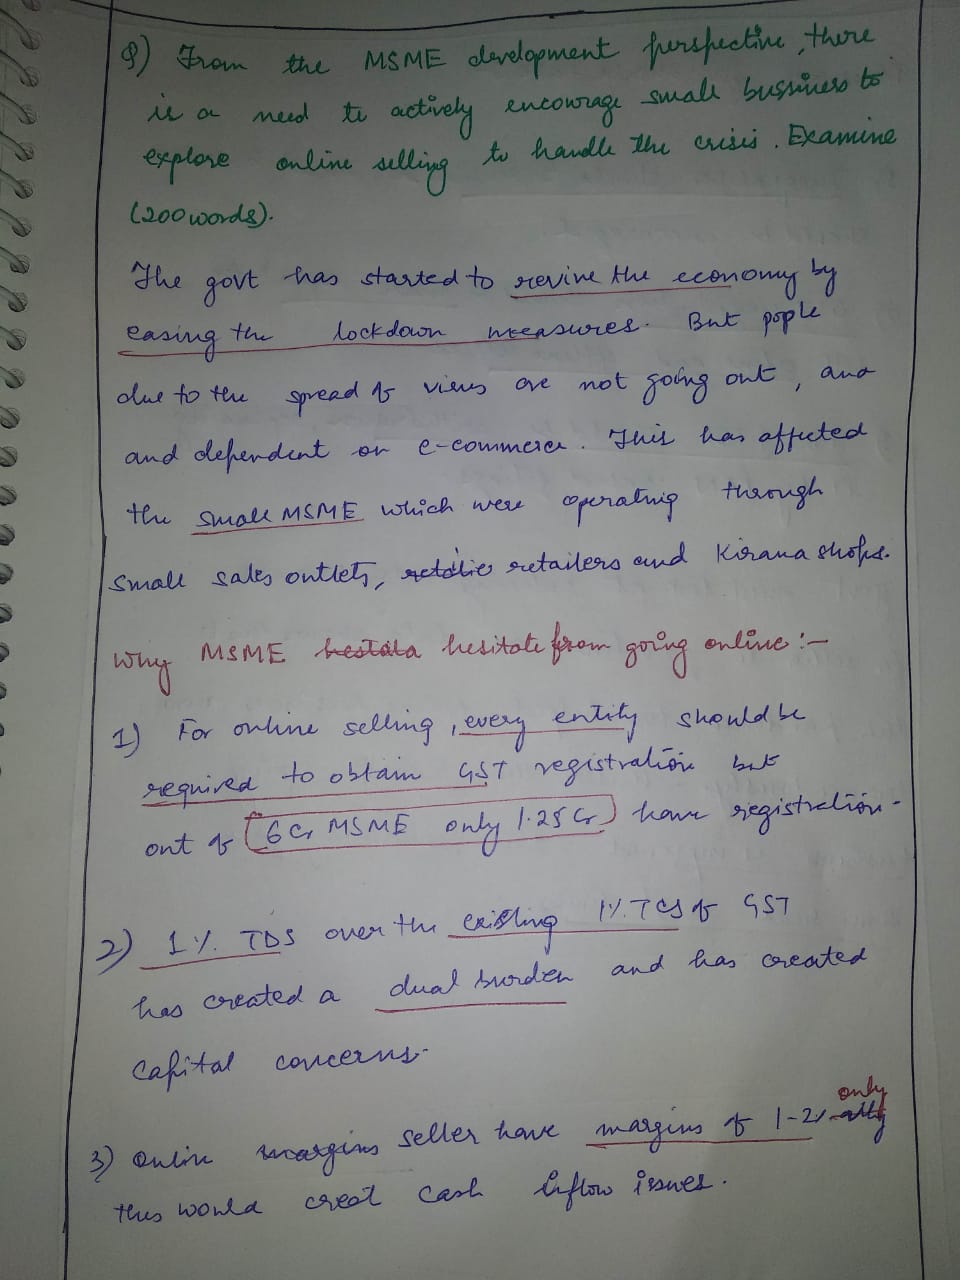 Q) From the MSME development perspective, there
is a need to actively encourage small bussiness to
explore online selling to handle the crisis. Examine
(200 words).
The govt has started to revive the economy by
easing the lockdown measures. But pople
due to the spread of virus are not going out, and
and dependent on e-commerce. This has affected
the small MSME which were operating through
small sales outlets, retalie retailers and Kirana shops.
Why MSME hestata hesitate from going online :-
1) For online selling, every entity should be
required to obtain GST registration but
out of 6 Cr MSME only 1.25 Cr have registration.
2) 1% TDS over the existing 1% TCS of GST
has created a dual burden and has created
capital concerns.
only
3) Online margins seller have margins of 1-2%
thus would creat cash inflow issues.